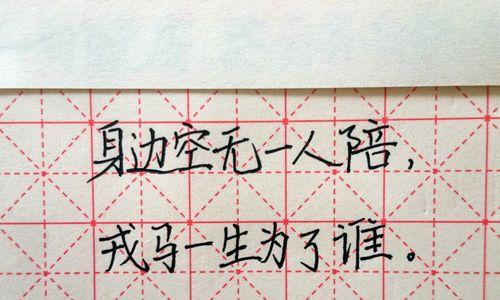 身边空无一人陪，
戎马一生为了谁。